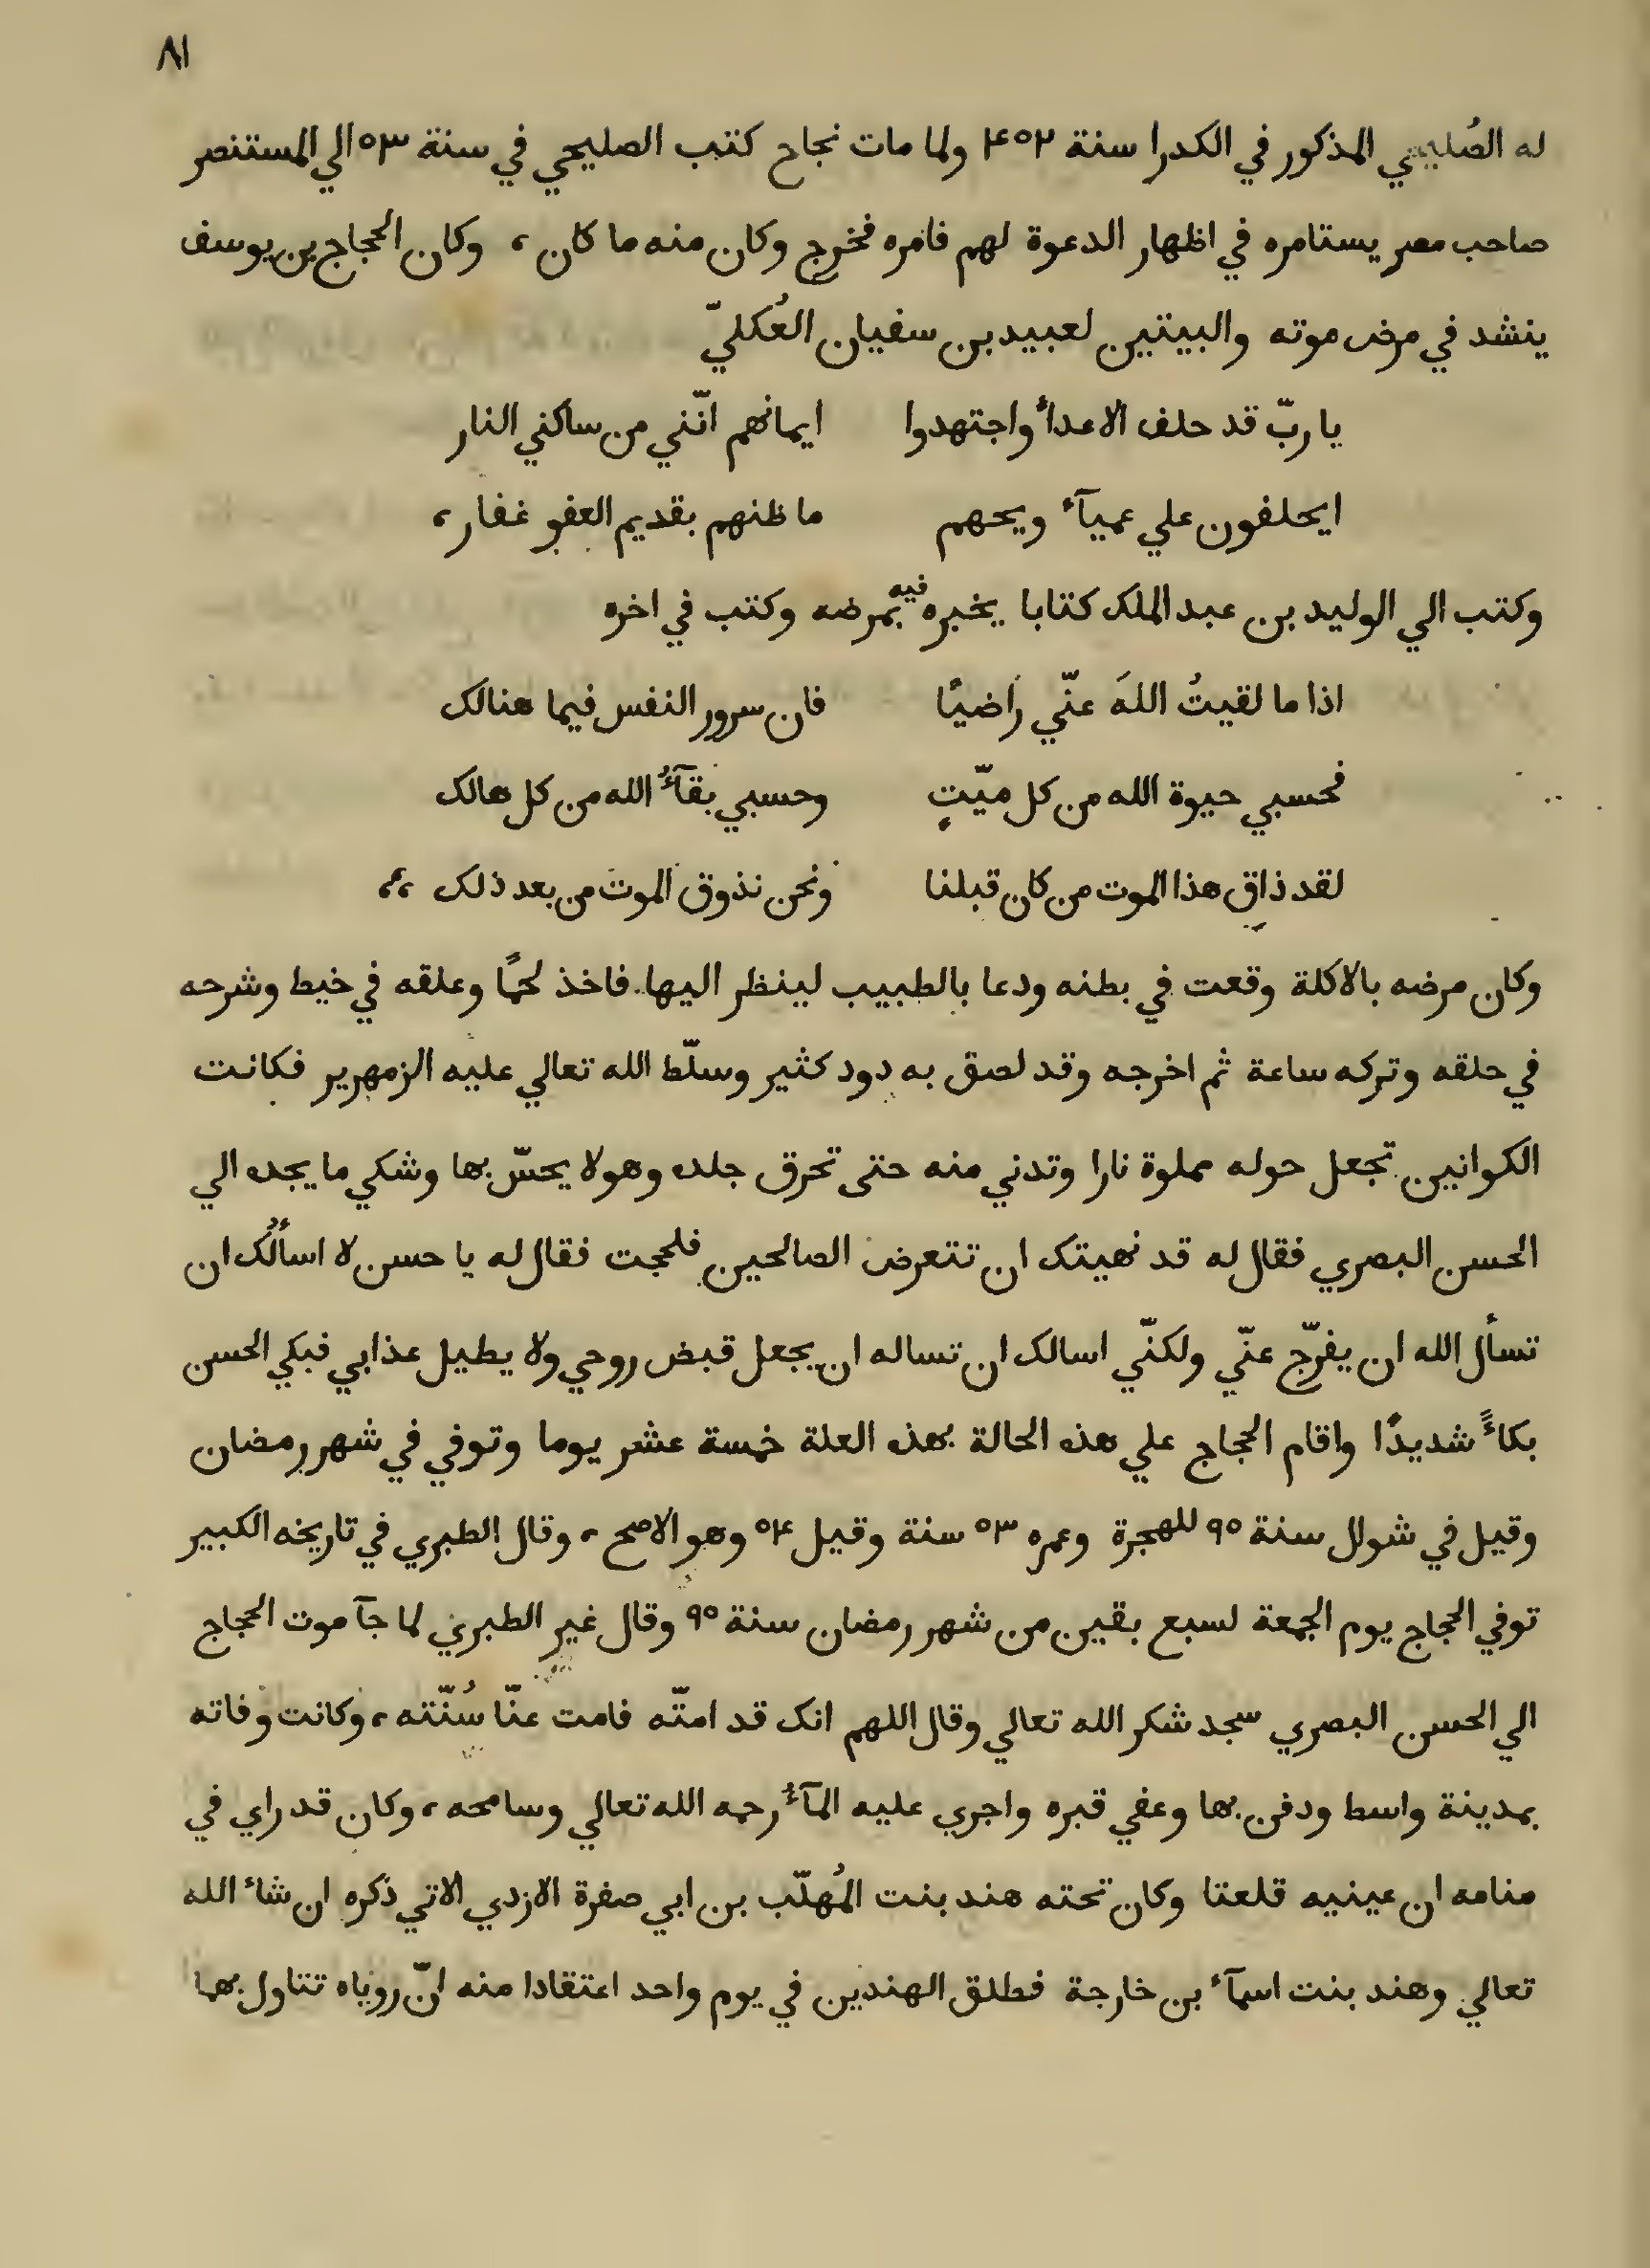 ٨١
له الصُليحي المذكور في الكدرا سنة ٤٥٢ ولما مات نجاح كتب الصليحي في سنة ٥٣ الي المستنصر
صاحب مصر يستامره في اظهار الدعوة لهم فامره فخرج وكان منه ما كان ، وكان الحجاج بن يوسف
ينشد في مرض موته والبيتين لعبيد بن سفيان العُكليّ
يا ربّ قد حلف الاعدأ واجتهدوا ايمانهم انّني من ساكني النار
ايحلفون علي عميآء ويحهم ما ظنهم بقديم العفو غفار ،
وكتب الي الوليد بن عبد الملك كتابا يخبره فيه بمرضه وكتب في اخره
اذا ما لقيتُ اللهَ عنّي راضيًا فان سرور النفس فيما هنالك
فحسبي حيوة الله من كل ميّتٍ وحسبي بقآءُ الله من كل هالك
لقد ذاق هذا الموت من كان قبلنا ونحن نذوق الموت من بعد ذلك ،،
وكان مرضه بالاكلة وقعت في بطنه ودعا بالطبيب لينظر اليها فاخذ لحمًا وعلقه في خيط وشرحه
في حلقه وتركه ساعة ثم اخرجه وقد لصق به دود كثير وسلّط الله تعالي عليه الزمهرير فكانت
الكوانين تجعل حوله مملوة نارا وتدني منه حتى تحرق جلده وهو لا يحسّ بها وشكي ما يجده الي
الحسن البصري فقال له قد نهيتك ان تتعرض الصالحين فلججت فقال له يا حسن لا اسألُك ان
تسأل الله ان يفرّج عنّي ولكنّي اسالك ان تساله ان يجعل قبض روحي ولا يطيل عذابي فبكي الحسن
بكاءً شديدًا واقام الحجاج علي هذه الحالة بهذه العلة خمسة عشر يوما وتوفي في شهر رمضان
وقيل في شوال سنة ٩٥ للهجرة وعمره ٥٣ سنة وقيل ٥٤ وهو الاصح ، وقال الطبري في تاريخه الكبير
توفي الحجاج يوم الجمعة لسبع بقين من شهر رمضان سنة ٩٥ وقال غير الطبري لما جآ موت الحجاج
الي الحسن البصري سجد شكر الله تعالي وقال اللهم انك قد امتّه فامت عنّا سُنّته ، وكانت وفاته
بمدينة واسط ودفن بها وعفي قبره واجري عليه المآءُ رحمه الله تعالي وسامحه ، وكان قد راي في
منامه ان عينيه قلعتا وكان تحته هند بنت المُهلّب بن ابي صفرة الازدي الاتي ذكره ان شاء الله
تعالي وهند بنت اسمآء بن خارجة فطلق الهندين في يوم واحد اعتقادا منه انّ روياه تتاول بهما